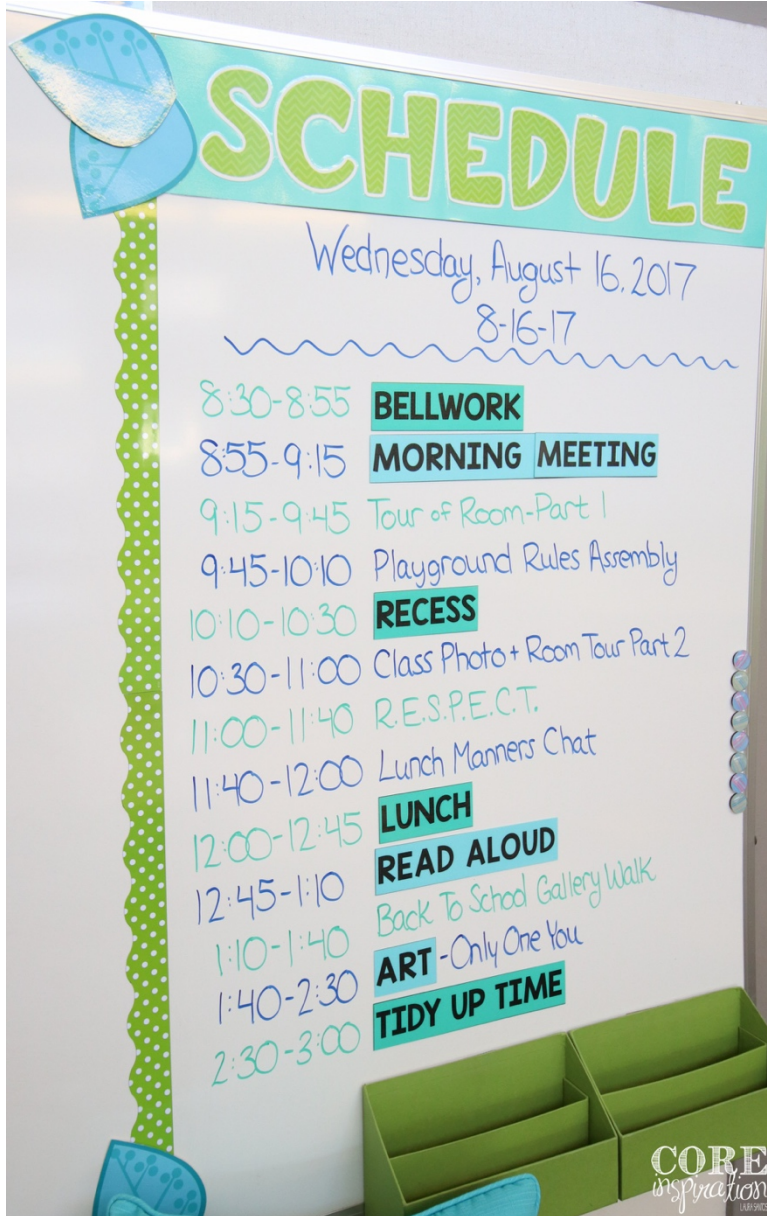 SCHEDULE
Wednesday, August 16, 2017
8-16-17
8:30-8:55 BELLWORK
8:55-9:15 MORNING MEETING
9:15-9:45 Tour of Room-Part 1
9:45-10:10 Playground Rules Assembly
10:10-10:30 RECESS
10:30-11:00 Class Photo + Room Tour Part 2
11:00-11:40 R.E.S.P.E.C.T.
11:40-12:00 Lunch Manners Chat
12:00-12:45 LUNCH
12:45-1:10 READ ALOUD
1:10-1:40 Back To School Gallery Walk
1:40-2:30 ART -Only One You
2:30-3:00 TIDY UP TIME
CORE
inspiration
LAURA SANTOS